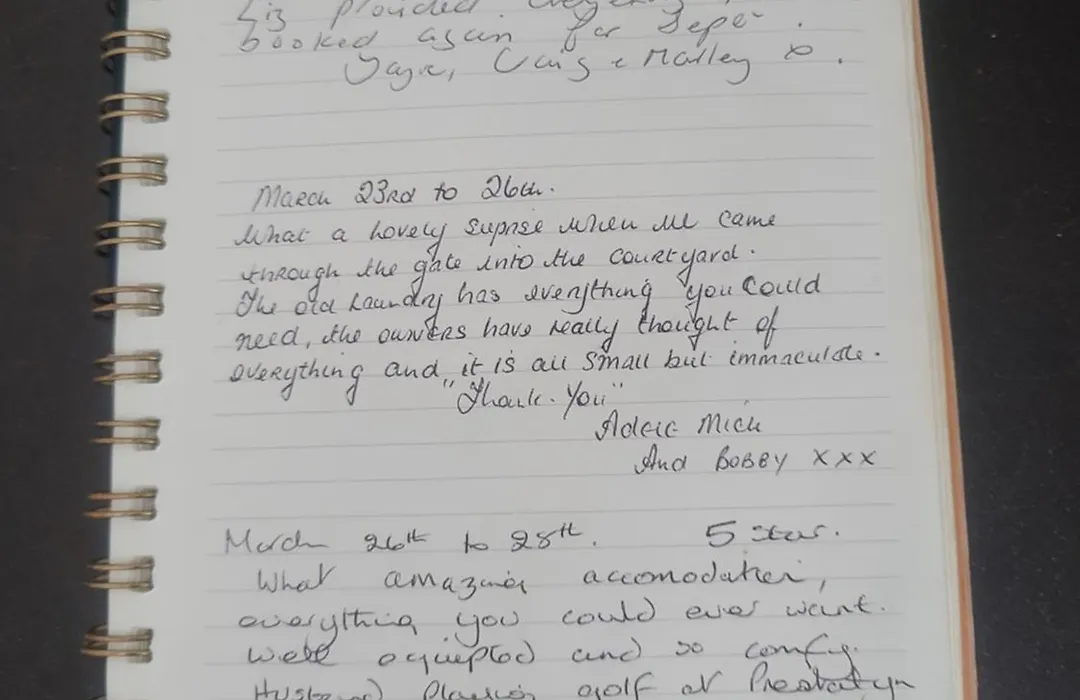 Liz provided.
booked again for Sepe .
Craig & Marley x .
March 23rd to 26th.
What a lovely suprise when we came
through the gate into the courtyard.
The old Laundry has everything you could
need, the owners have really thought of
everything and it is all small but immaculate.
"Thank-You"
Mick
And BOBBY xxx
March 26th to 28th. 5 star.
What amazing accomodation,
everything you could ever want.
Well equipted and so comfy.
Husband playing golf at Prestatyn